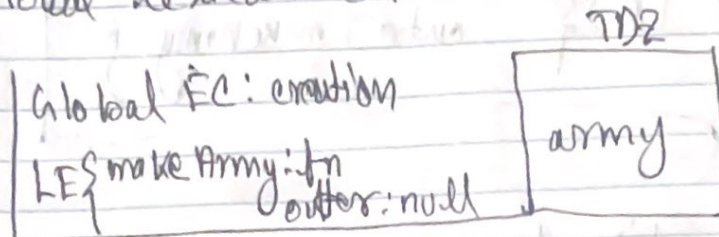 TDZ
Global EC: creation
army
LE{ make Army: fn
outter: null